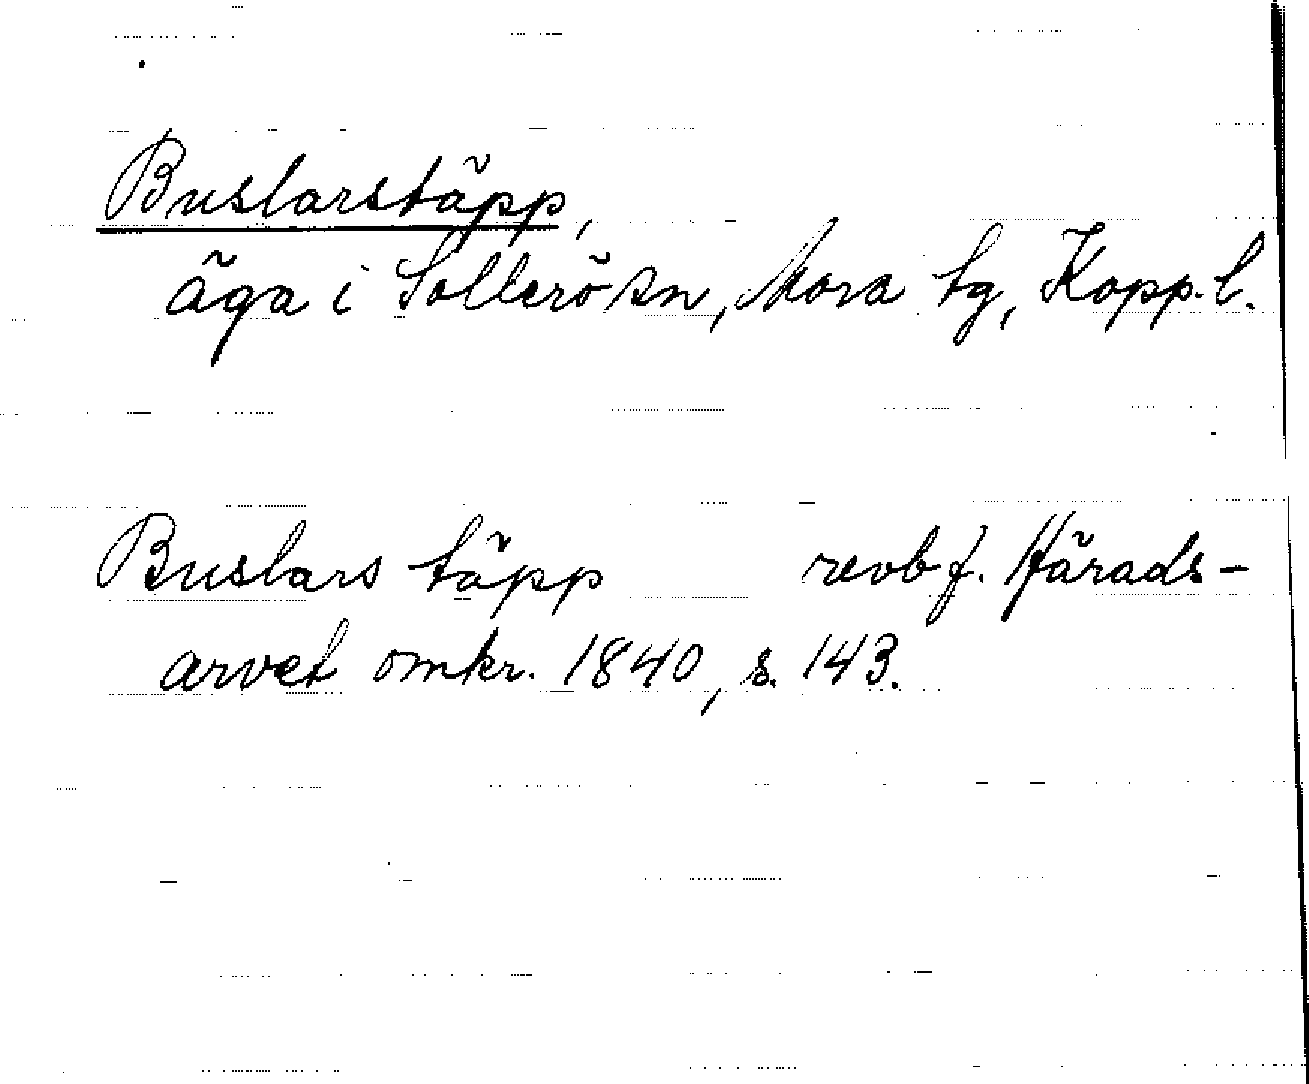 Buslarstäpp,
äga i Sollerö sn, Mora tg, Kopp. l.
Buslars täpp revbf. Härads-
arvet omkr. 1840, s. 143.